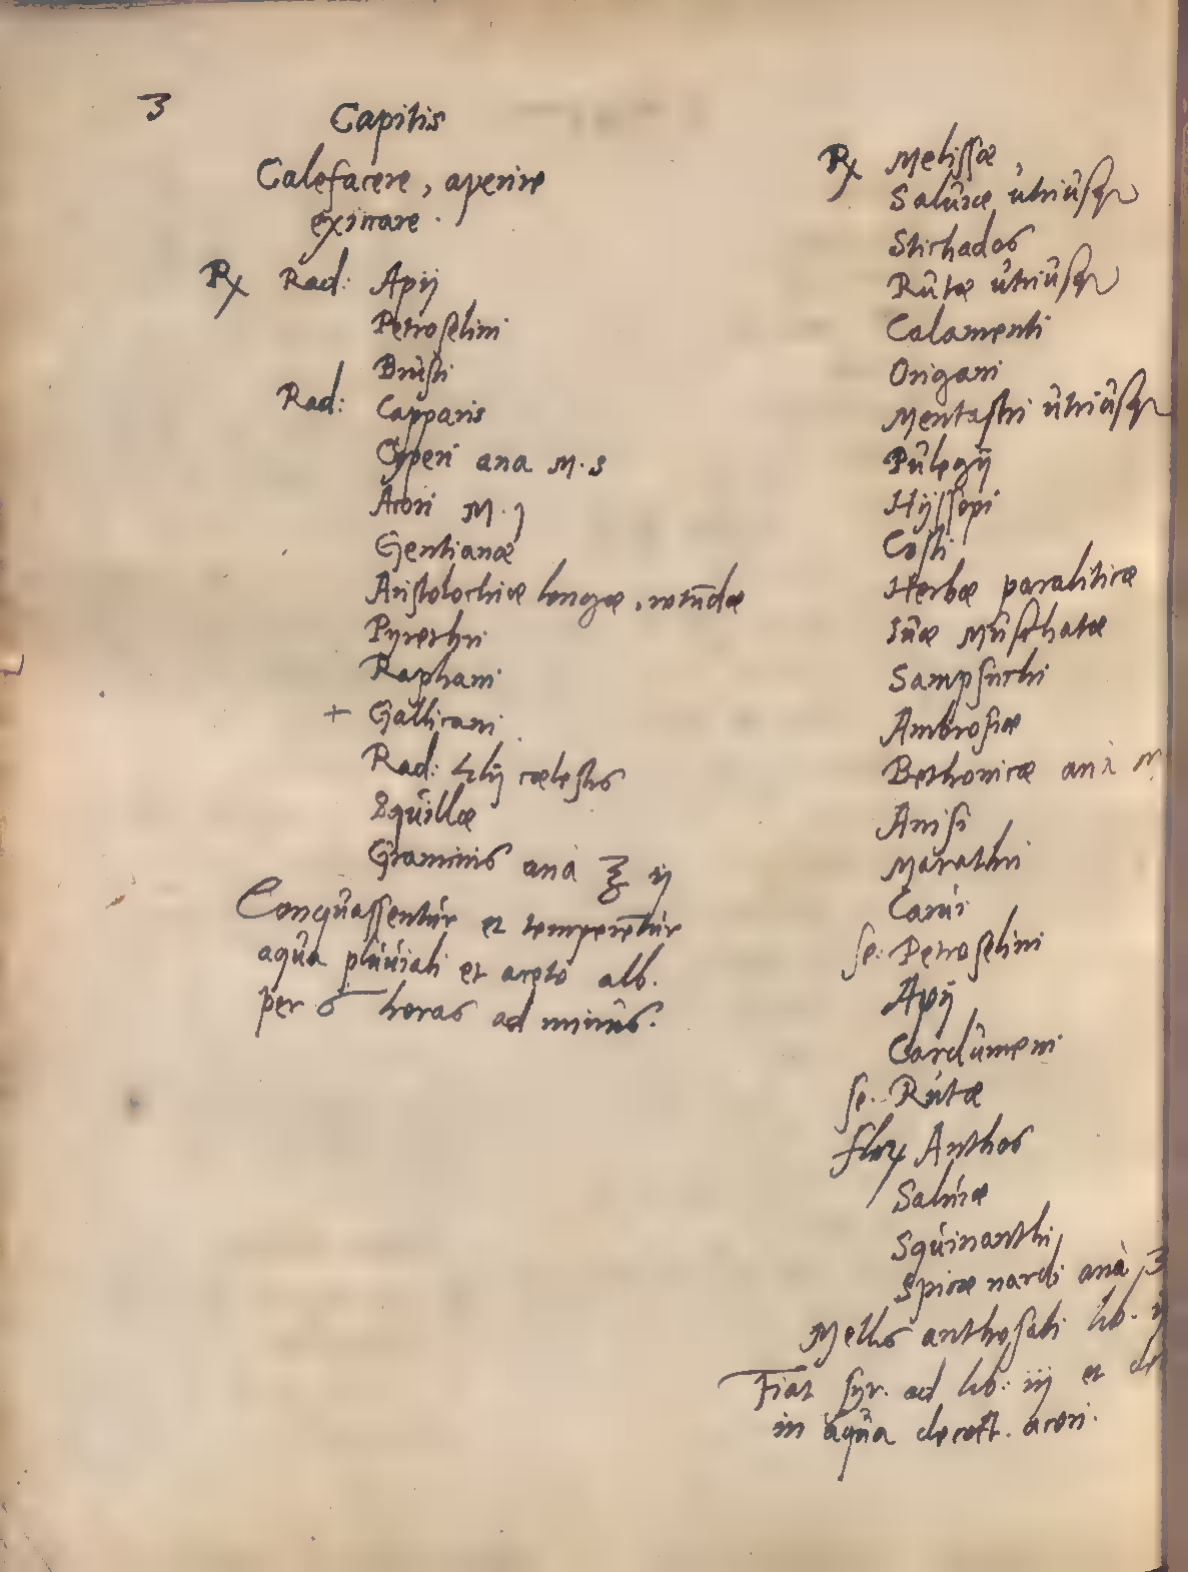 3
Capitis
Calefacere, aperire
exiccare.
℞ Rad: Apij
Petroselini
Brusci
Rad: Capparis
Cyperi ana M. s
Acori M. j
Gentianæ
Aristolochiæ longæ, rotūdæ
Pyrethri
Raphani
+ Gallicani
Rad: Lilij cœlestis
Squillæ
Graminis ana ℥ ij
Conquassentur et temperētur
aqua pluuiali et aceto alb.
per 6 horas ad minus.
℞ Melissæ,
Saluiæ utriusq
Stichados
Rutæ utriusq
Calamenti
Origani
Mentastri utriusq
Pulegij
Hijssopi
Costi
Herbæ paraliticæ
Iuæ Muschatæ
Sampsuchi
Ambrosiæ
Bethonicæ ana M
Anisi
Marathri
Carui
se. Petroselini
Apij
Cardumeni
se. Rutæ
flor Anthos
Saluiæ
Squinanthi
Spicæ nardi ana ʒ
Mellis anthosati lib.
Fiat syr. ad lib: iij et
in aqua decoct. acori.